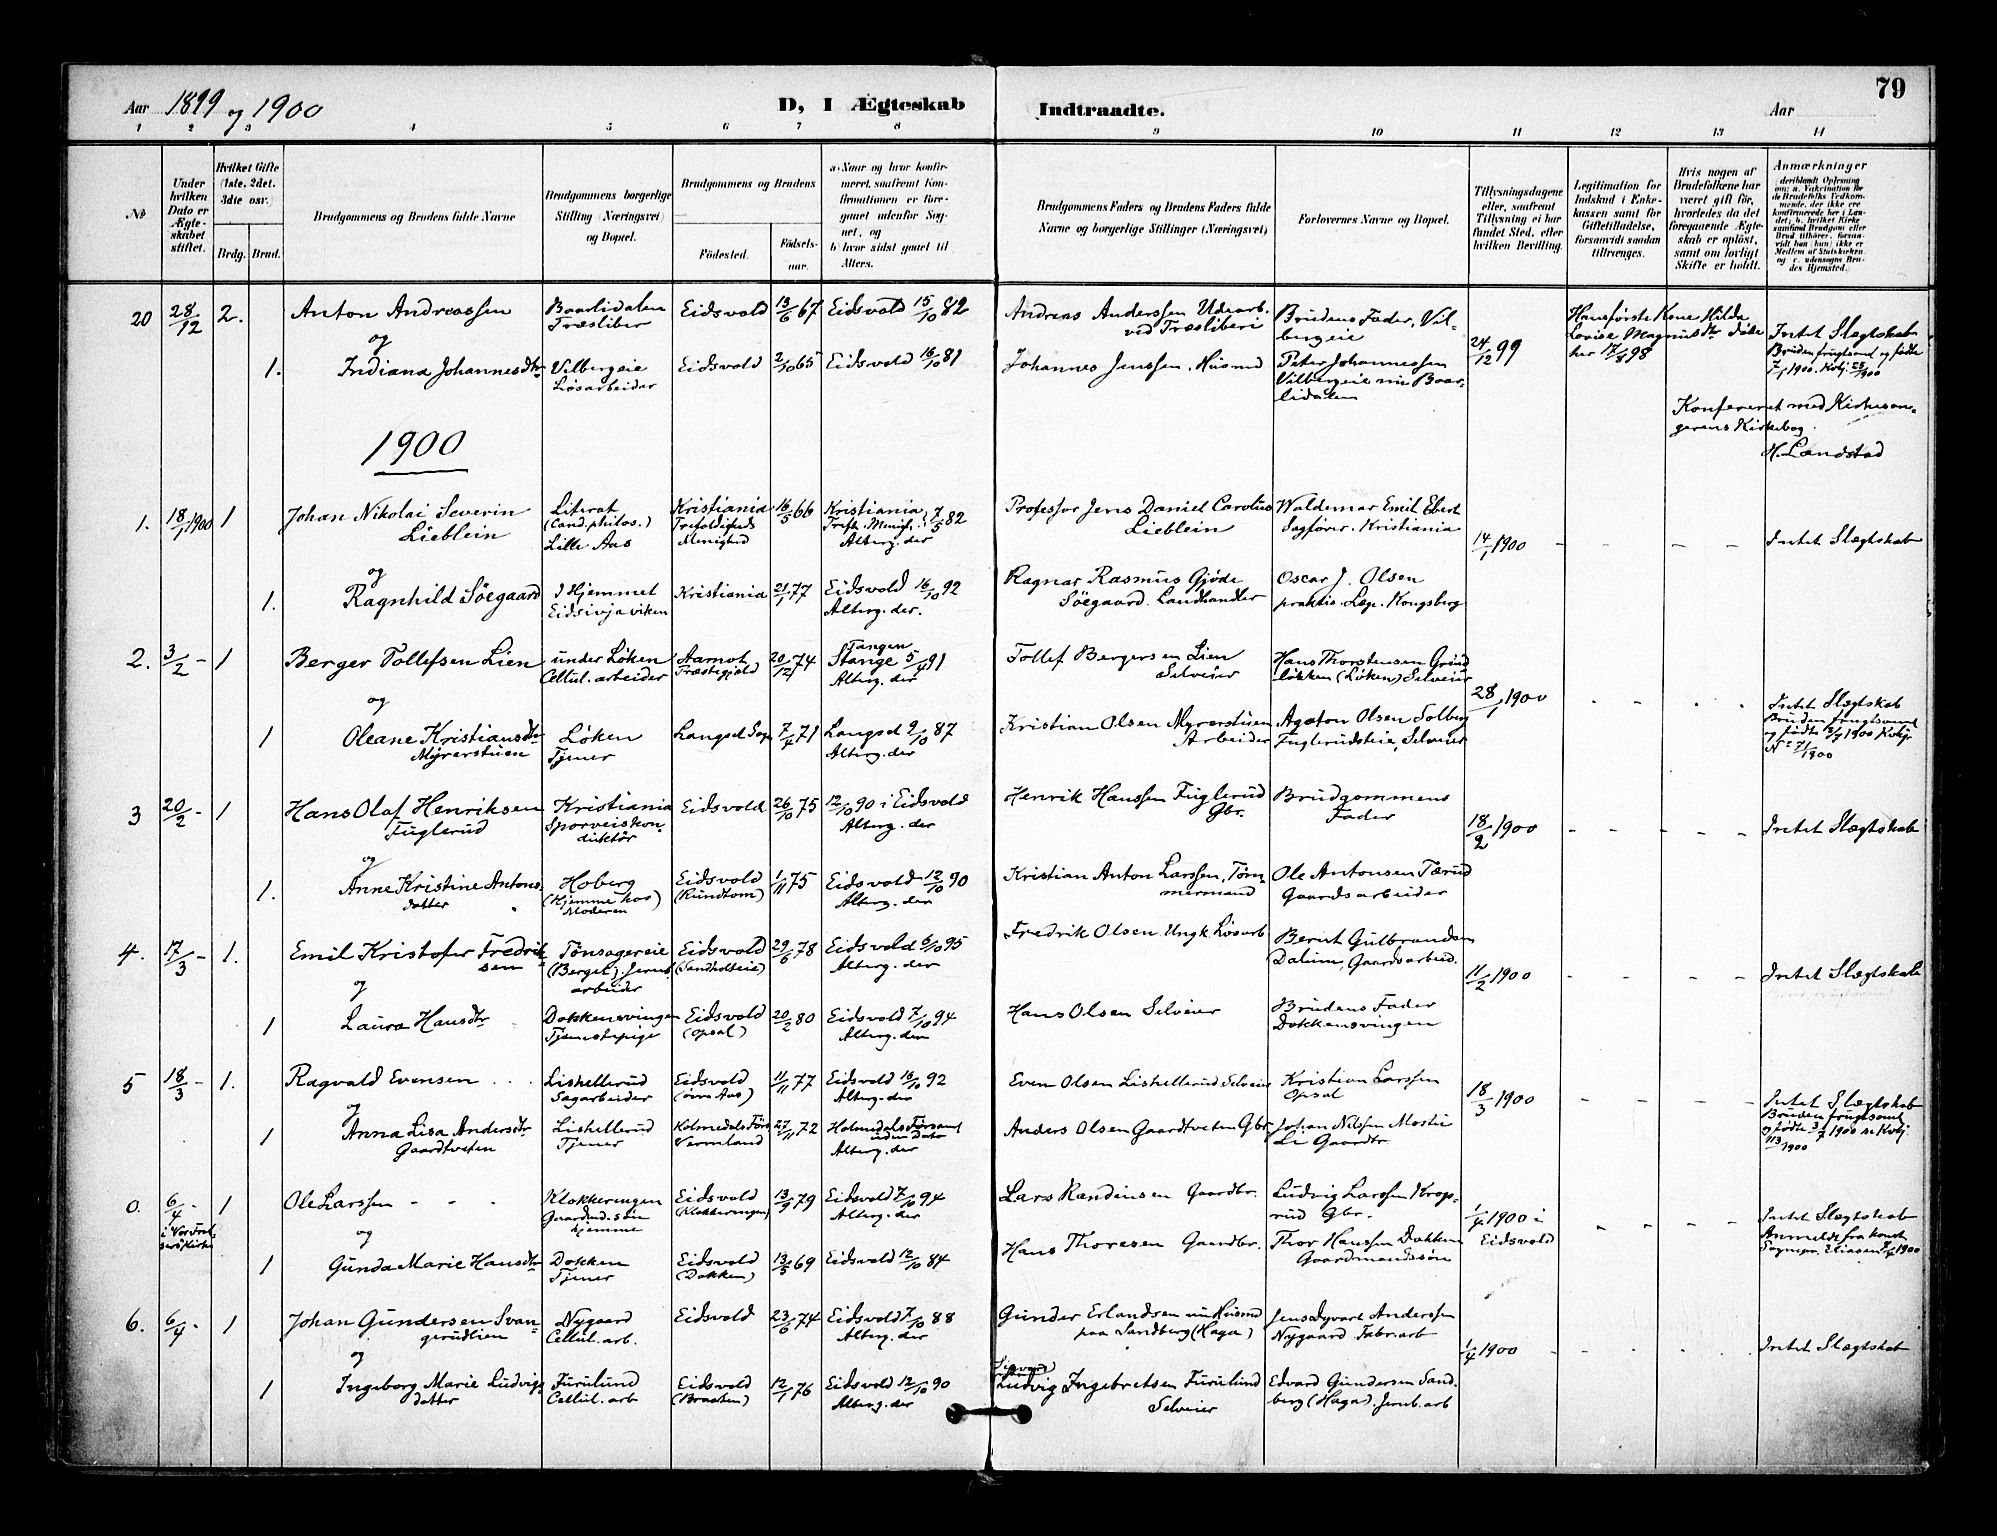 79
Aar 1899 og 1900
D, I Ægteskab Indtraadte.
Aar
1 2 3 4 5 6 7 8 9 10 11 12 13 14
№
Under hvilken Dato er Ægteskabet stiftet.
Hvilket Gifte (1ste, 2det, 3die osv.)
Brdg. Brud.
Brudgommens og Brudens fulde Navne
Brudgommens borgerlige Stilling (Næringsvei) og Bopæl.
Brudgommens og Brudens
Fødested.
Fødselsaar.
a. Naar og hvor konfirmeret, saafremt Konfirmationen er foregaaet udenfor Sognet, og
b. hvor sidst gaaet til Alters.
Brudgommens Faders og Brudens Faders fulde Navne og borgerlige Stillinger (Næringsvei)
Forlovernes Navne og Bopæl.
Tillysningsdagene eller, saafremt Tillysning ei har fundet Sted, efter hvilken Bevilling.
Legitimation for Indskud i Enkekassen samt for Giftetilladelse, forsaavidt saadan tiltrænges.
Hvis nogen af Brudefolkene har været gift før, hvorledes da det foregaaende Ægteskab er opløst, samt om lovligt Skifte er holdt.
Anmærkninger
(deriblandt Oplysning om: a. Vakcination for de Brudefolks Vedkommende, der ikke ere konfirmerede her i Landet; b. hvilket Kirkesamfund Brudgom eller Brud tilhører, forsaavidt han (hun) ikke er Medlem af Statskirken, og c. udensogns Brudes Hjemsted.)
20 28/12 2. Anton Andreassen Baarlidalen Træsliber Eidsvold 13/6 67 Eidsvold 15/10 82 Andreas Anderssen Udearb. ved Træsliberi Brudens Fader, Vilbergeie 24/12 99 Hans første Kone Hilda Lovise Magnusdtr døde her 17/8 98 Intet Slægtskab
og
1. Indiana Johannesdtr Vilbergeie Løsarbeider Eidsvold 2/10 65 Eidsvold 16/10 81 Johannes Jenssen, Husmd Peter Johannessen Vilbergeie nu Baarlidalen Bruden frugtsoml og fødte 7/1 1900.
Konfereret med Kirkesangerens Kirkebog.
H. Landstad
1900
1. 18/1 1900 1 Johan Nikolai Severin Lieblein Literat (Cand. philos.) Lille Aas Kristiania Trefoldigheds Menighed 16/5 66 Kristiania Trefh. Menigh. 7/5 82 Alterg. der Professor Jens Daniel Carolus Lieblein Waldemar Emil Ebert Sagfører. Kristiania 14/1 1900 - - - - Intet Slægtskab
og
1. Ragnhild Söegaard I Hjemmet Eidsivjaviken Kristiania 21/1 77 Eidsvold 16/10 92 Alterg. der. Ragnar Rasmus Gjöde Söegaard. Landhandler Oscar J. Olsen praktis. Læg. Kongsberg
2. 3/2 - 1 Berger Tollefsen Lien under Løken Cellul. arbeider Aamot Præstegjeld 20/12 74 Tangen Stange 5/4 91 Alterg. der Tollef Bergersen Lien Selveier Hans Thorstensen Grindløkken (Løken) Selveier 28/1 1900 - - - - Intet Slægtskab
og
1 Oleane Kristiansdtr Myrerstuen Løken Tjener Langset Sogn 7/4 71 Langset 2/10 87 Alterg. der Kristian Olsen Myrerstuen Arbeider Agaton Olsen Solberg Fuglerudseie, Selveier Bruden frugtsoml og fødte 1900 Kvkj. N° 71/1900
3 20/2 - 1 Hans Olaf Henriksen Fuglerud Kristiania Sporveiskonduktør Eidsvold 26/10 75 12/10 90 i Eidsvold Alterg. der Henrik Hanssen Fuglerud Gbr. Brudgommens Fader 18/2 1900 - - - - - Intet Slægtskab
og
1. Anne Kristine Antonsdatter Hoberg (Hjemme hos Moderen) Eidsvold (Rundtom) 1/11 75 Eidsvold 12/10 90 Alterg. der Kristian Anton Larssen, Tömmermand Ole Antonsen Tærud Gaardsarbeider
4. 17/3 - 1. Emil Kristofer Fredriksen Tönsagereie (Berget). Jernb. arbeider Eidsvold (Sandholteie) 29/6 78 Eidsvold 6/10 95 Alterg. der Fredrik Olsen. Ungk. Løsarb Bernt Gulbrandsen Dalum, Gaardsarbeid. 11/2 1900 - - - - Intet Slægtskab
og
1 Laura Hansdtr Dokkensvingen Tjenestepige Eidsvold (Opsal) 20/2 80 Eidsvold 7/10 94 Alterg. der Hans Olsen Selveier Brudens Fader Dokkensvingen
5 18/3 - 1. Ragvald Evensen Liskellerud Sagarbeider Eidsvold (øvre Aas) 11/11 77 Eidsvold 16/10 92 Alterg. der Even Olsen Liskellerud Selveier Kristian Larssen Opsal 18/3 1900 - - - - Intet Slægtskab
og
1 Anna Lisa Andersdtr Gaardtveten Liskellerud Tjener Kølmedals Förs Vermland 27/11 72 Holmedals Församl uden Dato Alterg. der Anders Olsen Gaardtveten Gbr. Johan Nilssen Mostu Li Gaardbr Bruden frugtsoml og fødte 3/7 1900 se Kvkj. 113/1900
0. 6/4 - i Vor Frelsers Kirke 1 Ole Larssen - - - Klokkerengen Gaardmd. søn hjemme Eidsvold (Klokkerengen) 13/9 79 Eidsvold 7/10 94 Alterg. der Lars Randinsen Gaardbr. Ludvig Larssen Kroprud Gbr. 1/4 1900 i Eidsvold - - - - Intet Slægtskab
og
1 Gunda Marie Hansdtr Dokken Tjener Eidsvold (Dokken) 13/5 69 Eidsvold 12/10 84 Hans Thoresen Gaardbr. Thor Hanssen Dokken Gaardmandssön Anmeldt fra konst. Sognepr. Eliasen 7/4 1900
6. 6/4 - 1 Johan Gundersen Svangerudlien Nygaard Cellul. arb. Eidsvold 23/6 74 Eidsvold 7/10 88 Alterg. der Gunder Erlandsen nu Husmd paa Sandberg (Haga) Jens Dyvart Anderssen Nygaard Fabr. arb 1/4 1900 - - - - Intet Slægtskab
og
1 Ingeborg Marie Ludvigsdatter Furulund Cellul. arb Eidsvold (Braaten) 12/1 76 Eidsvold 12/10 90 Alterg. der Ludvig Ingebretsen Furulund Selveier Edvard Gundersen Sandberg (Haga). Jernb. arb